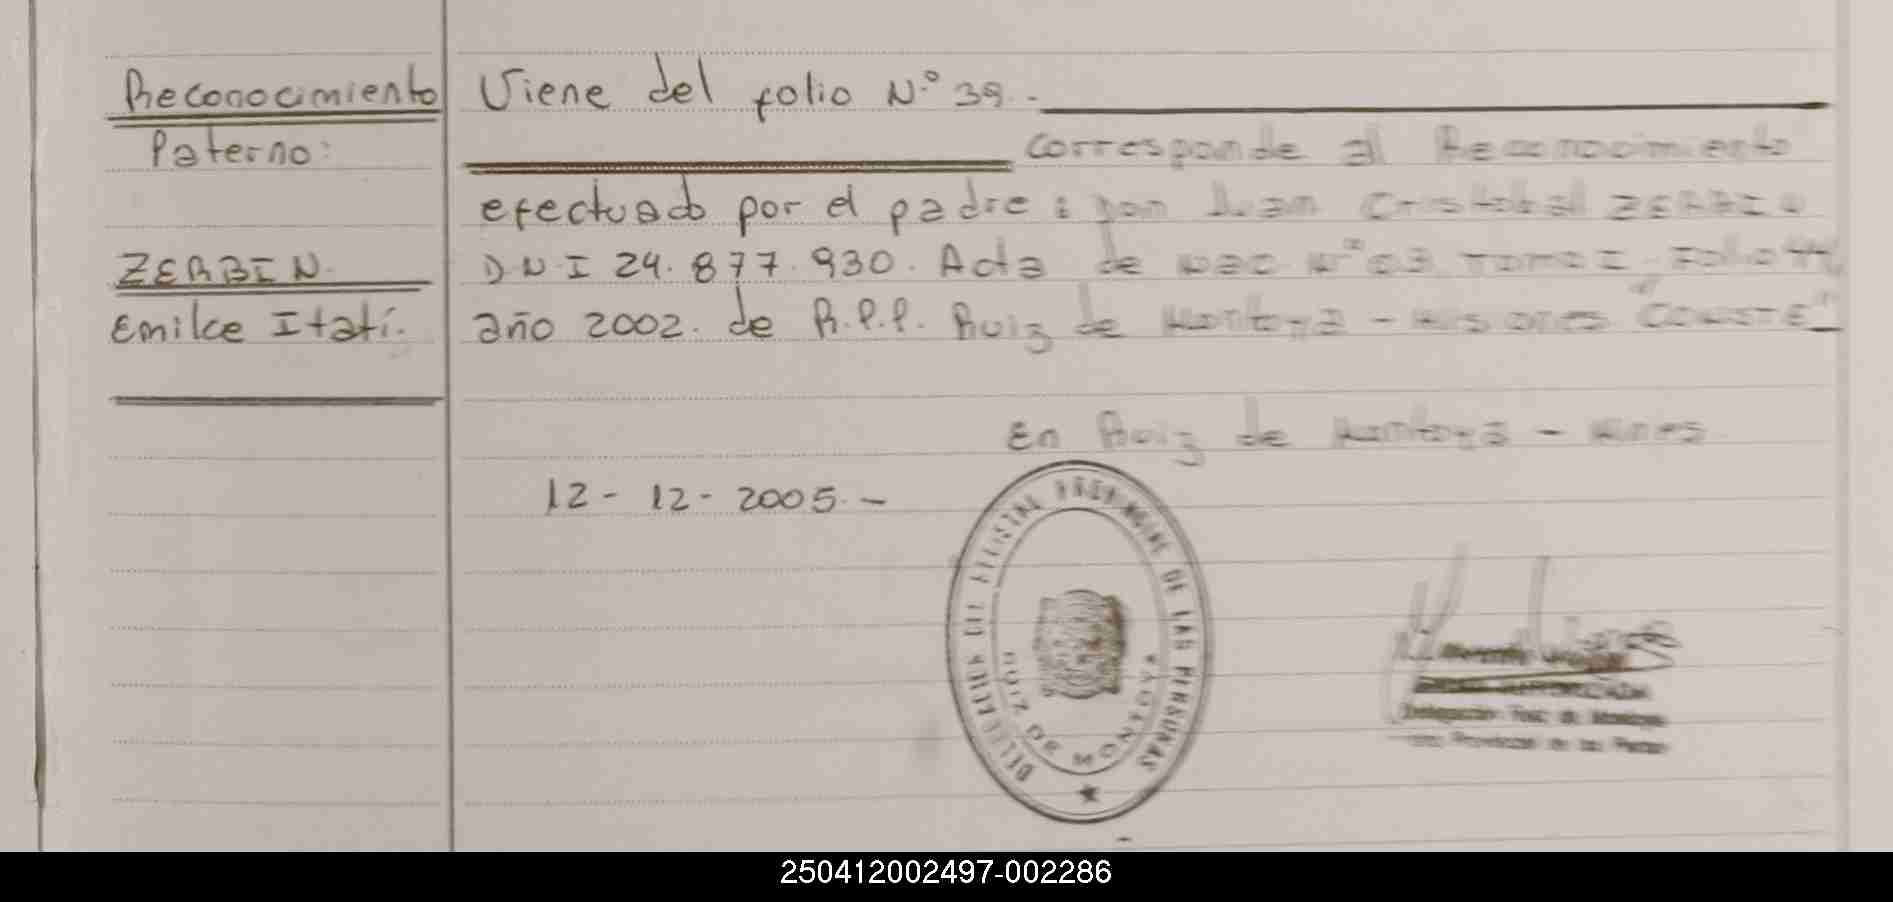 Reconocimiento
Paterno:
ZERBIN
Emilce Itatí.
Viene del folio N.º 39.-
corresponde al Reconocimiento
efectuado por el padre: Don Juan Cristobal ZERBIN
D.N.I 24.877.930. Acta de Nac Nº 03 Tomo I Folio
año 2002. de R.P.P. Ruiz de Montoya - Misiones "CONSTE"
En Ruiz de Montoya - Mnes
12-12-2005.-
DELEGACION DEL REGISTRO PROVINCIAL DE LAS PERSONAS
RUIZ DE MONTOYA
Delegación Ruiz de Montoya
Provincial de las Personas
250412002497-002286